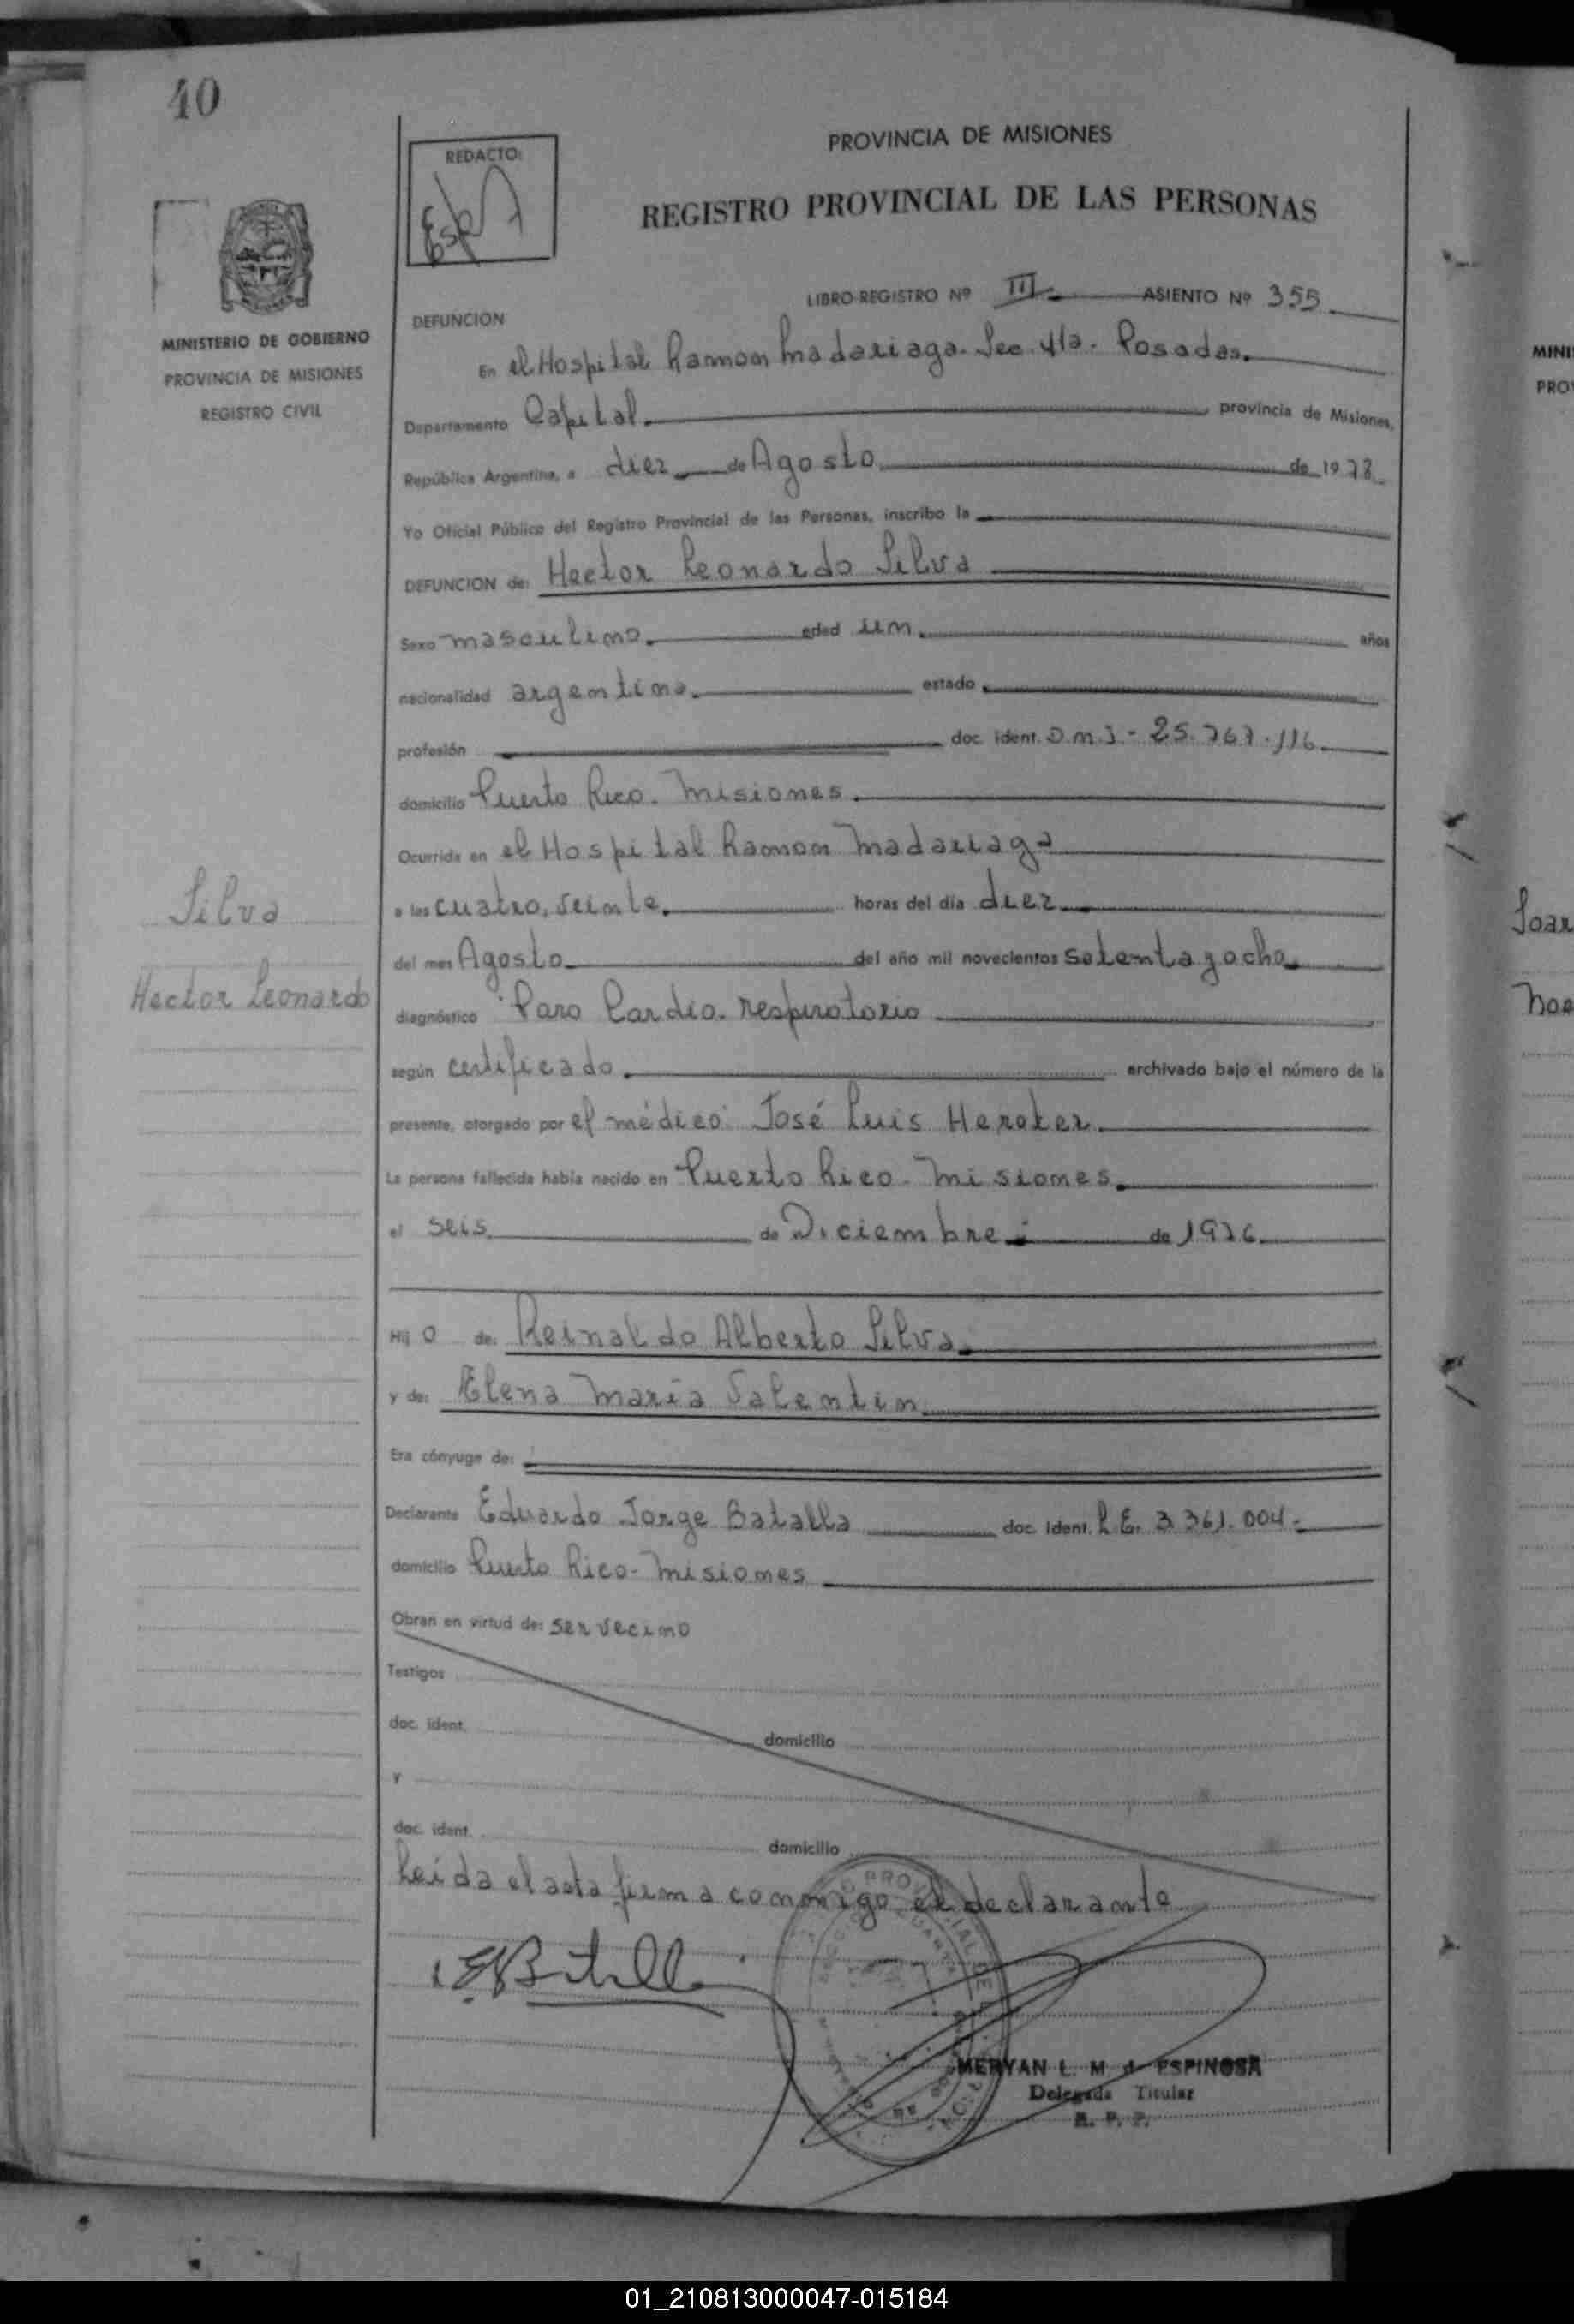 40
REDACTO:
PROVINCIA DE MISIONES
REGISTRO PROVINCIAL DE LAS PERSONAS
MINISTERIO DE GOBIERNO
PROVINCIA DE MISIONES
REGISTRO CIVIL
LIBRO-REGISTRO Nº III ASIENTO Nº 355
DEFUNCION
En el Hospital Ramon Madariaga. Sec. 4ta. Posadas.
Departamento Capital. provincia de Misiones,
República Argentina, a diez de Agosto de 1978
Yo Oficial Público del Registro Provincial de las Personas, inscribo la
DEFUNCION de: Hector Leonardo Silva
Sexo masculino. edad un. años
nacionalidad argentina. estado
profesión doc. ident. D.N.I. - 25.767.116
domicilio Puerto Rico. Misiones.
Ocurrida en el Hospital Ramon Madariaga
a las cuatro, veinte. horas del día diez
del mes Agosto del año mil novecientos setenta y ocho
diagnóstico Paro Cardio-respiratorio
según certificado. archivado bajo el número de la
presente, otorgado por el médico José Luis
La persona fallecida había nacido en Puerto Rico - Misiones.
el seis. de Diciembre de 1976
Hij o de: Reinaldo Alberto Silva.
y de: Elena María Valentin
Era cónyuge de:
Declarante Eduardo Jorge Batalla doc. ident. L.E. 3.361.004.
domicilio Puerto Rico - Misiones
Obran en virtud de: ser vecino
Testigos
doc. ident. domicilio
y
doc. ident. domicilio
Leida el acta firma conmigo el declarante
MERYAN L. M. d ESPINOSA
Delegada Titular
R. P. P.
Silva
Hector Leonardo
MINI
PRO
Soar
01_210813000047-015184